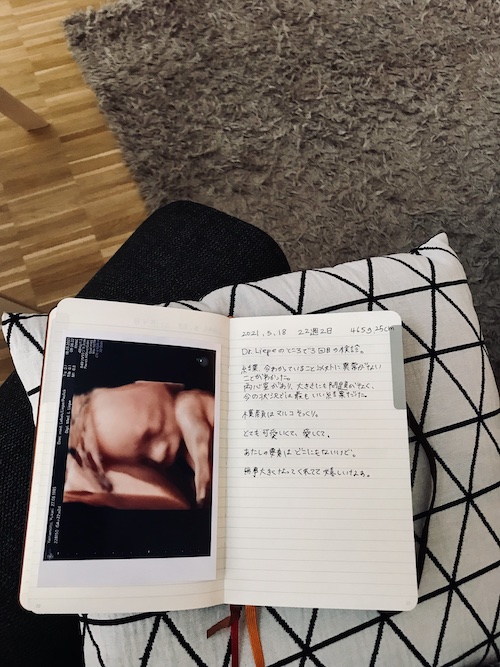 2021.5.18 22週2日 465g 25cm
Dr. Liepeのところで3回目の検診。
結果、今わかっていること以外に異常がない
ことがわかった。
内心室があり、大きさにも問題がなく、
今の状況では最もいい結果だった。
横顔はマルコそっくり。
とても可愛いくて、愛しくて。
あたしの要素はどこにもないけど。
無事大きくなってくれてて嬉しいなぁ。